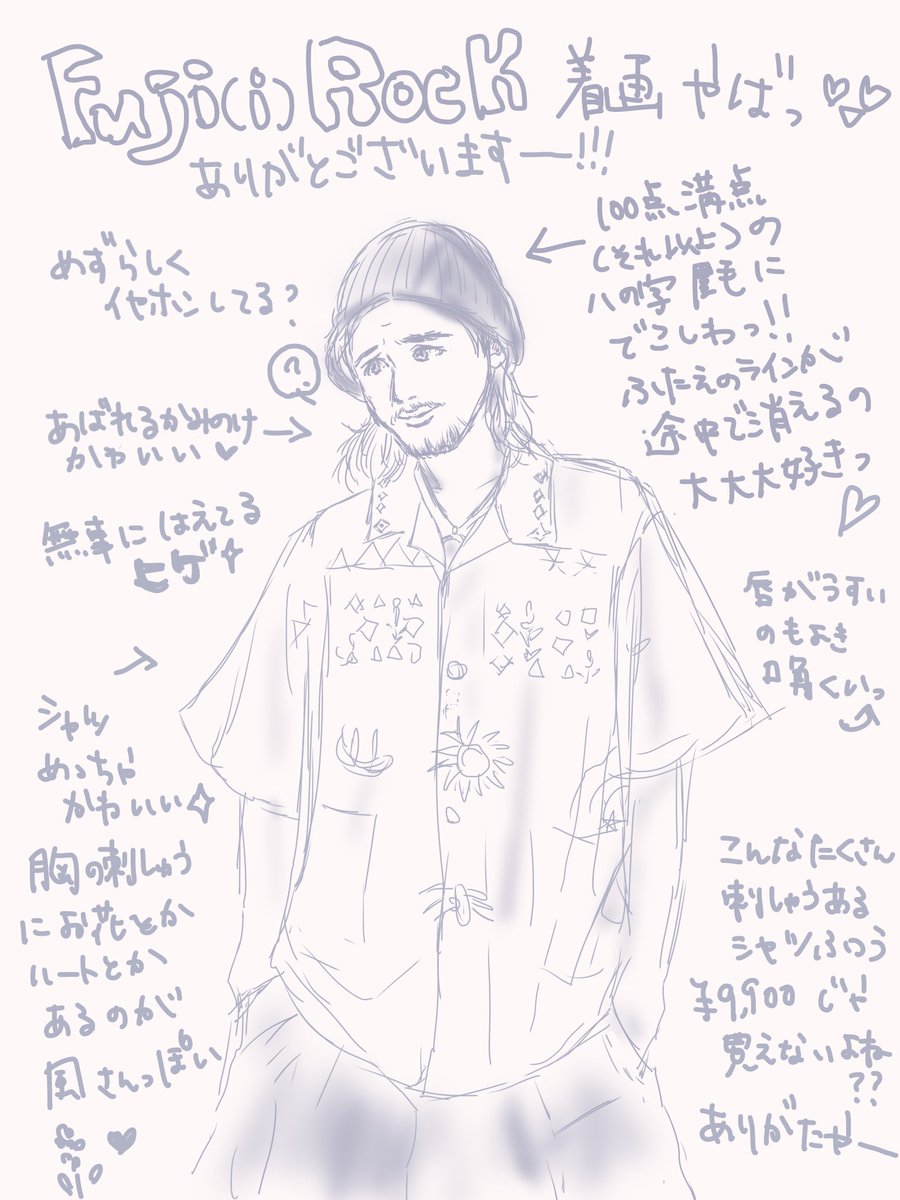 Fuji(i) Rock 着画 やばっ
ありがとございますー!!!
めずらしく
イヤホンしてる?
?
あばれるかみのけ
かわいい
無事に はえてる
ヒゲ
シャツ
めっちゃ
かわいい
胸の刺しゅう
にお花とか
ハートとか
あるのが
風さんっぽい
100点満点
(それ以上)の
ハの字眉毛に
でこしわっ!!
ふたえのラインが
途中で消えるの
大大大好きっ
唇がうすい
のもよき
口角くいっ
こんなたくさん
刺しゅうある
シャツふつう
¥9,900 じゃ
買えないよね
??
ありがたやー